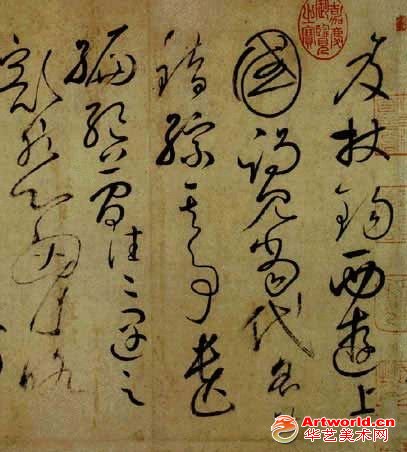 笈杖錫西遊上
國謁見當代名公
錯綜其事遺
編絕簡往往遇之
豁然心胸略
嘉慶御覽之寶
Artworld.cn
华艺美术网